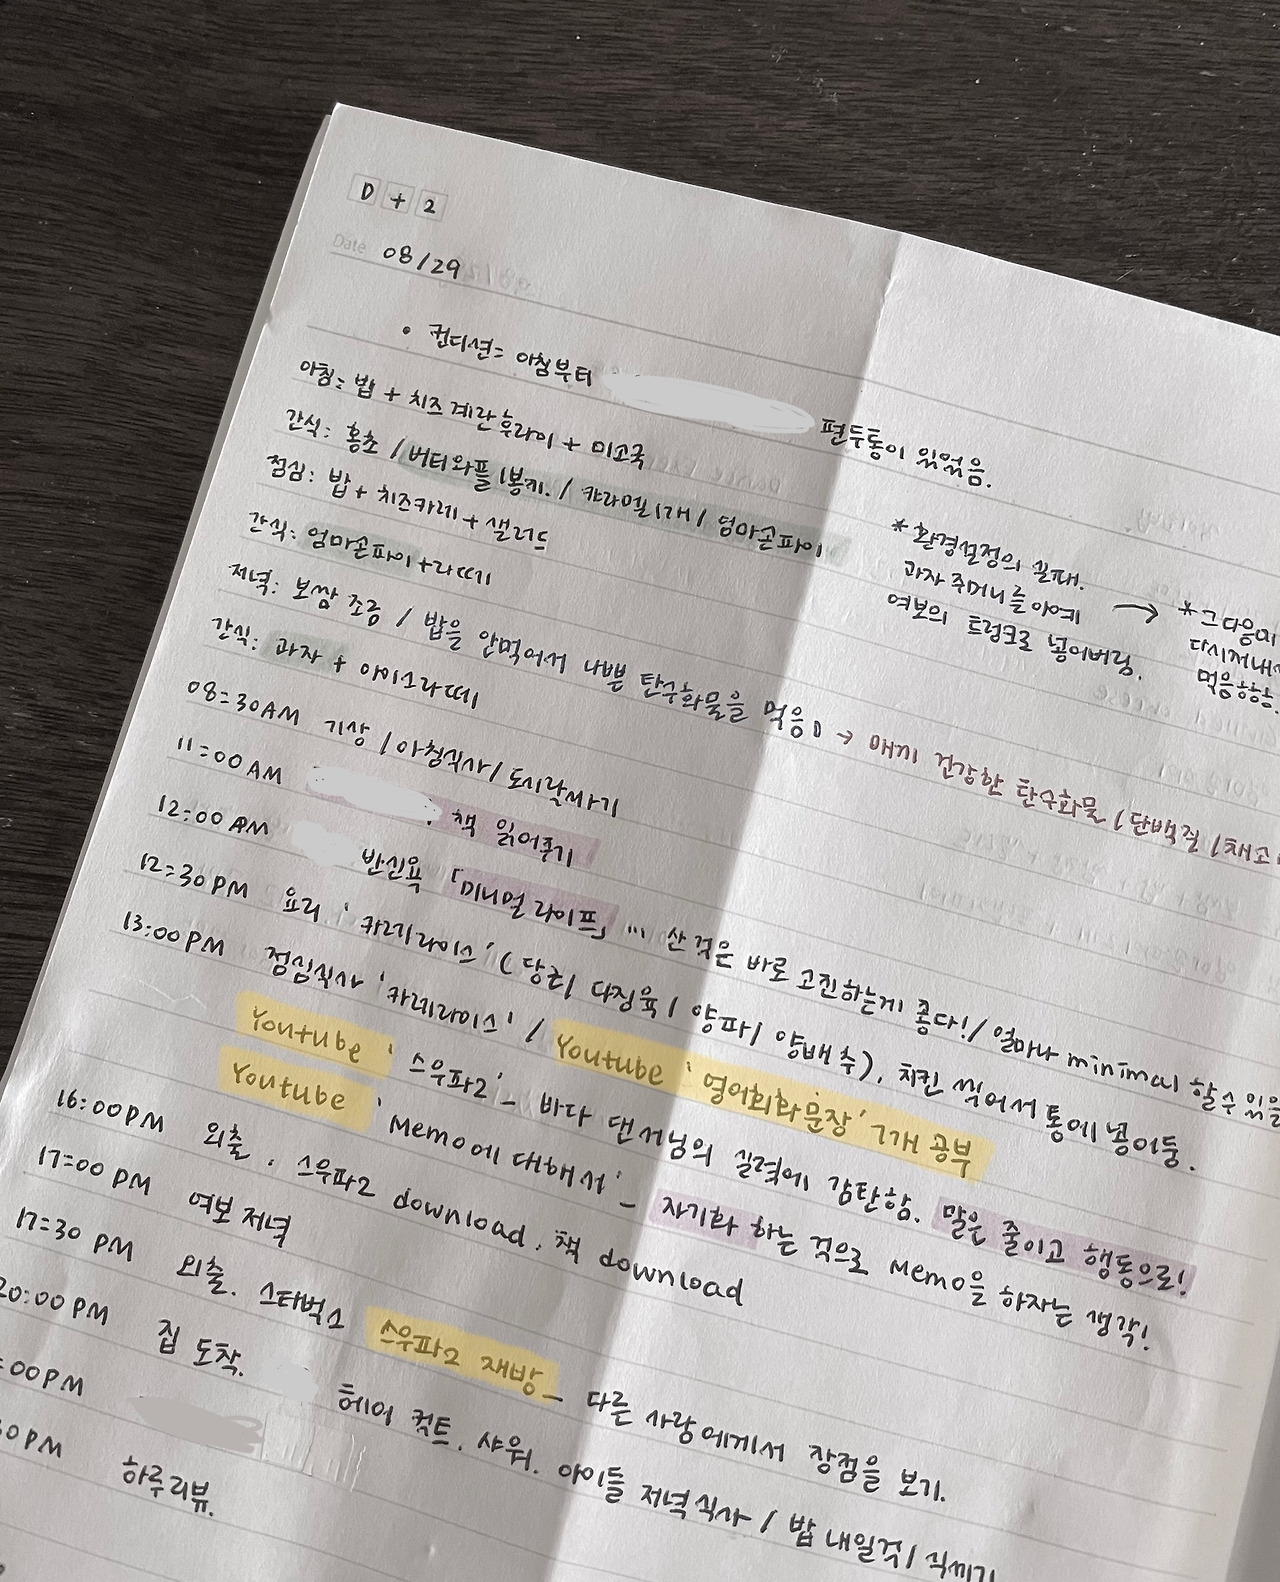 D + 2
Date 08/29
• 컨디션= 아침부터 편두통이 있었음.
아침: 밥 + 치즈계란후라이 + 미소국
간식: 홍초 / 버터와플 1봉지. / 캬라멜 1개 / 엄마손파이
점심: 밥 + 치즈카레 + 샐러드
간식: 엄마손파이 + 라떼
저녁: 보쌈 조금 / 밥을 안먹어서 나쁜 탄수화물을 먹음 → 매끼 건강한 탄수화물 / 단백질 / 채소
간식: 과자 + 아이스라떼
* 환경설정의 실패.
과자 주머니를 아예
여보의 트렁크로 넣어버림.
→ * 그 다음에
다시 꺼내서
먹음 하하.
08:30AM 기상 / 아침식사 / 도시락싸기
11:00 AM 책 읽어주기
12:00 PM 반신욕 「미니멀 라이프」 ... 산 것은 바로 고친하는게 좋다! / 얼마나 minimal 할 수 있을
12:30PM 요리 '카레라이스' (당근 / 다짐육 / 양파 / 양배추), 치킨 씻어서 통에 넣어둠.
13:00PM 점심식사 '카레라이스' / Youtube '영어회화문장' 7개 공부
Youtube '스우파2' - 바다 댄서님의 실력에 감탄함. 말은 줄이고 행동으로!
Youtube 'Memo에 대해서' - 자기화 하는 것으로 Memo을 하자는 생각!
16:00PM 외출. 스우파2 download. 책 download
17:00 PM 여보 저녁
17:30 PM 외출. 스타벅스 스우파2 재방 - 다른 사람에게서 장점을 보기.
20:00 PM 집 도착. 헤어 컷트. 샤워. 아이들 저녁식사 / 밥 내일것 / 식세기
:00PM
30PM 하루리뷰.